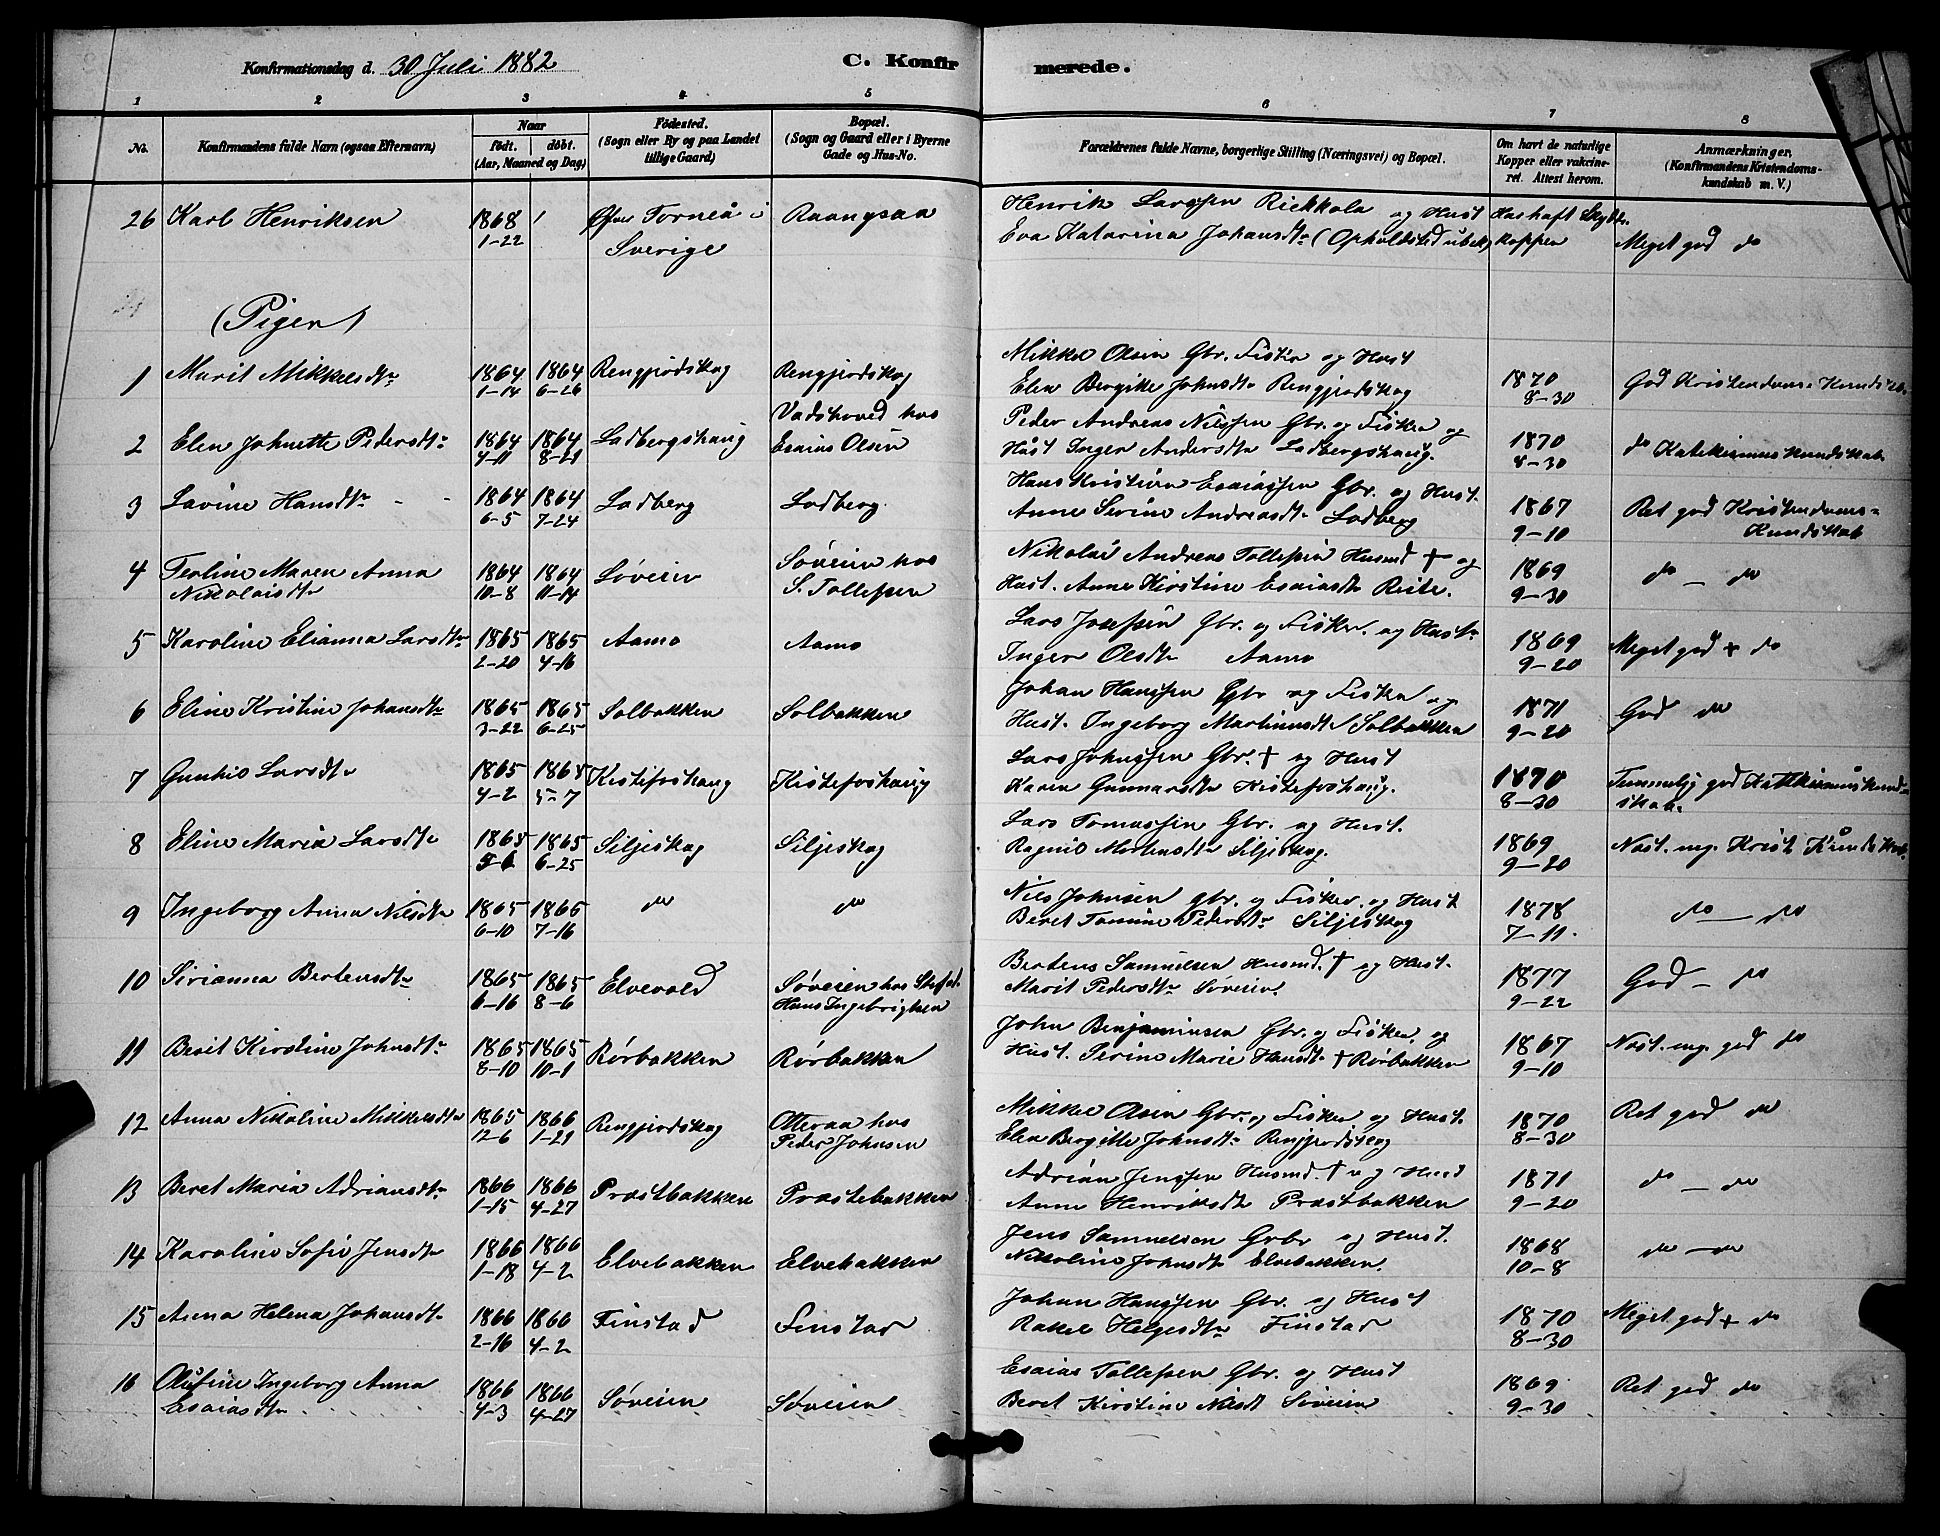 Konfirmationsdag d. 30 Juli 1882
C. Konfirmerede.
1 2 3 4 5 6 7 8
No. | Konfirmandens fulde Navn (ogsaa Efternavn) | Naar födt. döbt. (Aar, Maaned og Dag) | Födested. (Sogn eller By og paa Landet tillige Gaard) | Bopæl. (Sogn og Gaard eller i Byerne Gade og Hus-No. | Forældrenes fulde Navne, borgerlige Stilling (Næringsvei) og Bopæl. | Om havt de naturlige Kopper eller vakcineret. Attest herom. | Anmærkninger, (Konfirmandens Kristendomskundskab m. V.)
26 Karl Henriksen | 1868 1-22 | Øfre Torneå i Sverige | Raangsaa | Henrik Larssen Riekkola og Hust Eva Katarina Johansdtr (Opholdsted ubek) | Har haft kopper | Meget god do
(Piger)
1 Marit Mikkelsdtr | 1864 1-14 | 1864 6-26 | Rengjordskog | Rengjordskog | Mikkel Olsen Gbr. Fisker og Hust Elen Bergitte Johnsdtr Rengjordskog | 1870 8-30 | God Kristendoms Kundskab
2 Elen Johnette Pedersdtr | 1864 4-11 | 1864 8-21 | Ladbergshaug | Vadshoved hos Esaias Olsen | Peder Andreas Nilssen Gbr. og Fisker og Hust Inger Andersdtr Ladbergshaug. | 1870 8-30 | do Katekismus Kundskab
3 Lavine Hansdtr | 1864 6-5 | 1864 7-24 | Ladberg | Ladberg | Hans Kristian Esaiassen Gbr. og Hust. Anne Serine Andreasdtr Ladberg | 1867 9-10 | Ret god Kristendoms-Kundskab
4 Maren Anna Nikolaisdtr | 1864 10-8 | 1864 11-14 | Søveien | Søveien hos S. Tollefsen | Nikolai Andreas Tollefsen Husmd † og Hust. Anne Kirstine Esaiasdtr | 1869 9-30 | do — do
5 Karoline Elianna Larsdtr | 1865 2-20 | 1865 4-16 | Aamo | Aamo | Lars Josefsen Gbr. og Fisker. og Hustr Inger Olsdtr Aamo | 1869 9-20 | Meget god + do
6 Eline Kristine Johansdtr | 1865 3-22 | 1865 6-25 | Solbakken | Solbakken | Johan Hanssen Gbr og Fisker og Hust. Ingeborg Martinusdtr Solbakken | 1871 9-20 | God do
7 Gunhil Larsdtr | 1865 4-2 | 1865 5-7 | Kistefoshaug | Kistefoshaug | Lars Johnssen Gbr. † og Hust Karen Gunnarsdtr Kistefoshaug. | 1870 8-30 | Temmelig god Katekismuskundskab.
8 Eline Maria Larsdtr | 1865 5-6 | 1865 6-25 | Siljeskog | Siljeskog | Lars Tomassen Gbr. og Hust. Ragnil Mortensdtr Siljeskog. | 1869 9-20 | Nost. mg. Krist. Kundskab.
9 Ingeborg Anna Nilsdtr | 1865 6-10 | 1865 7-16 | do | do | Nils Johnsen gbr. og Fisker. og Hust Beret Tomine Pedersdtr Siljeskog | 1878 7-11. | do — do
10 Sirianna Bertensdtr | 1865 6-16 | 1865 8-6 | Elvevold | Søveien hos Hans Ingebrigtsen | Bertens Samuelsen Husmd. † og Hust. Marit Pedersdtr Søveien. | 1877 9-22 | God — do
11 Berit Kirstine Johnsdtr | 1865 8-10 | 1865 10-1 | Rørbakken | Rørbakken | John Benjaminsen Gbr. og Fisker, og Hust. Serine Marie Hansdtr † Rørbakken | 1867 9-10 | Nost. mg. god do
12 Anna Nikoline Mikkelsdtr | 1865 12-6 | 1866 1-21 | Rengjordskog | Otteraa hos Peder Johnsen | Mikkel Olsen Gbr. og Fisker og Hust. Elen Bergitte Johnsdtr Rengjordskog | 1870 8-30 | Ret god do
13 Beret Maria Adriansdtr | 1866 1-15 | 1866 4-27 | Præstbakken | Præstebakken | Adrian Jenssen Husmd. † og Hust Anne Henriksdtr Præstbakken | 1871 9-20 | do — do
14 Karoline Sofie Jensdtr | 1866 1-18 | 1866 4-2 | Elvebakken | Elvebakken | Jens Samuelsen Grbr og Hust. Nikoline Johnsdtr Elvebakken. | 1868 10-8 | do — do
15 Anna Helena Johansdtr | 1866 2-16 | 1866 4-2 | Finstad | Finstad | Johan Hanssen Gbr. og Hust Rakel Helgesdtr Finstad | 1870 8-30 | Meget god + do
16 Olufine Ingeborg Anna Esaiasdtr | 1866 4-3 | 1866 4-27 | Søveien | Søveien | Esaias Tollefsen Gbr. og Hust Beret Kirstine Nilsdt Søveien | 1869 9-30 | Ret god do